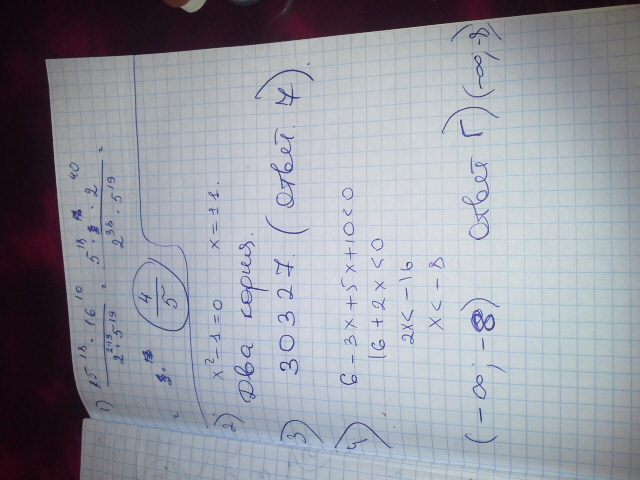 1) 25¹⁸ · 16¹⁰ / 2³⁸ · 5¹⁹ = 5¹⁸ · 2⁴⁰ / 2³⁸ · 5¹⁹ =
= 4/5
2) x² - 1 = 0 x = ±1.
Два корня.
3) 30327. (ответ. 7).
4) 6 - 3x + 5x + 10 < 0
16 + 2x < 0
2x < -16
x < -8
(-∞; -8) Ответ Г) (-∞; -8)